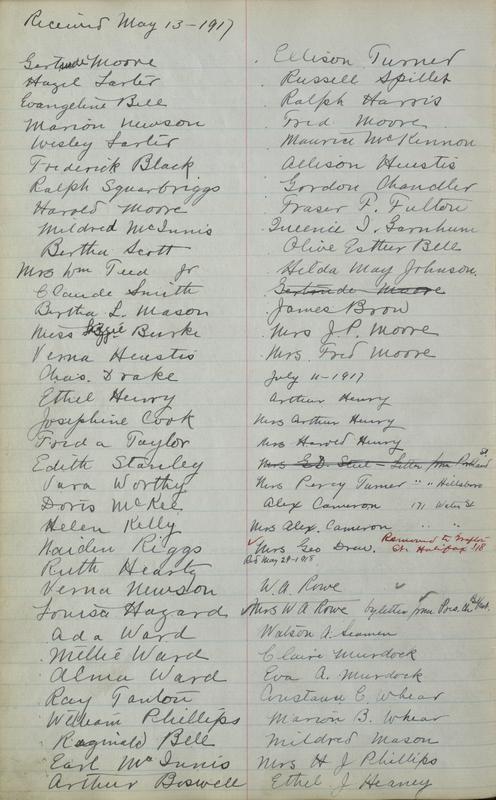 Received May 13-1917
Gertrude Moore
Hazel Larter
Evangeline Bell
Marion Newson
Wesley Larter
Frederick Black
Ralph Squarbriggs
Harold Moore
Mildred McInnis
Bertha Scott
Mrs Wm Teed Jr
Claude Smith
Bertha L. Mason
Miss Lizzie Burke
Verna Heustis
Chas. Drake
Ethel Henry
Josephine Cook
Ford a Taylor
Edith Stanley
Vara Worthy
Doris McKee
Helen Kelly
Naiden Riggs
Ruth Heartz
Verna Newson
Louisa Hazard
Ada Ward
Millie Ward
Alma Ward
Ray Tanton
William Phillips
Reginald Bell
Earl McInnis
Arthur Boswell
Ellison Turner
Russell Spillet
Ralph Harris
Fred Moore
Maurice McKennon
Allison Heustis
Gordon Chandler
Fraser F. Fulton
Queenie I. Garnhum
Olive Esther Bell
Hilda May Johnson.
Gertrude Moore
James Brow
Mrs J.P. Moore
Mrs. Fred Moore
July 11-1917
Arthur Henry
Mrs Arthur Henry
Mrs Harold Henry
Mrs G.D. Steel - Letter from Portland St.
Mrs Percy Turner " " Hillsboro
Alex Cameron 171 Water St
Mrs Alex. Cameron " "
Mrs Geo Drew. Removed to Grafton
St. Halifax 318
May 29-1918
W.A. Rowe
Mrs W A Rowe by letter from Pres. Ch.
Watson A. Seamen
Claire Murdock
Eva A. Murdock
Constaun C. Whear
Marion B. Whear
Mildred Mason
Mrs H J Phillips
Ethel J Heaney